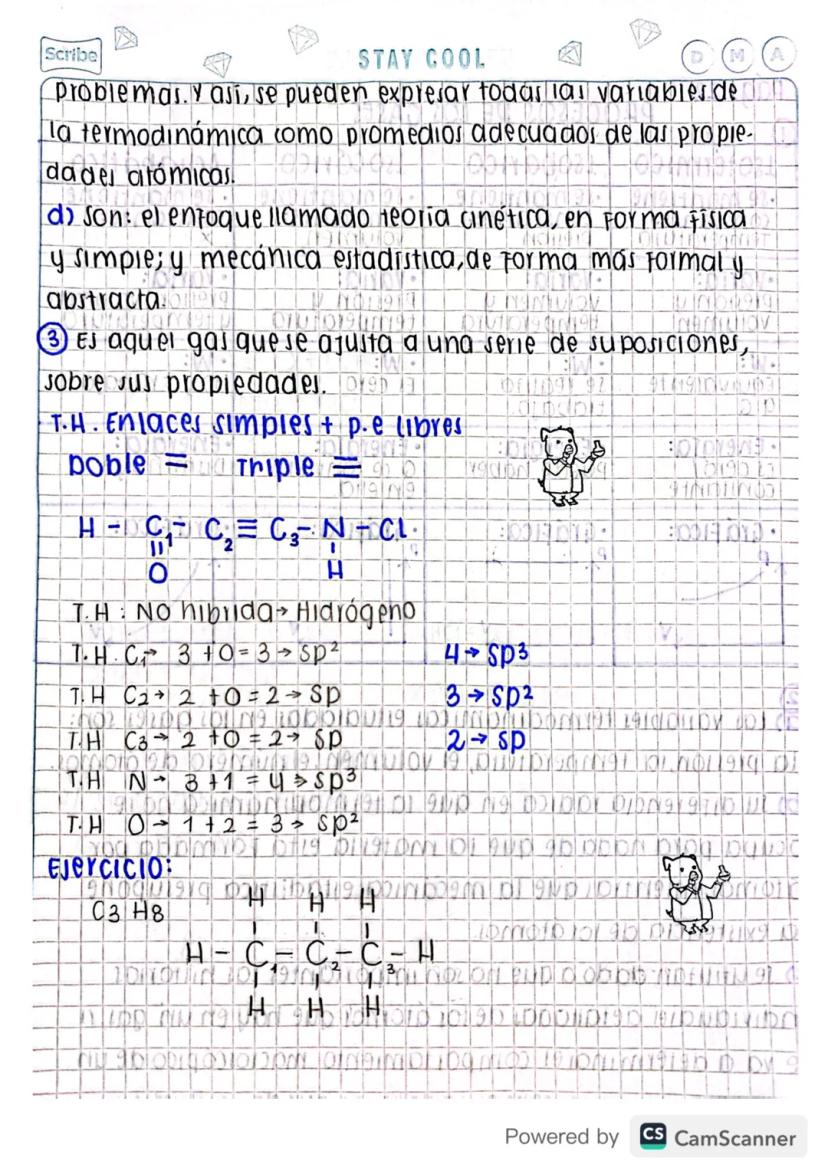 Scribe
STAY COOL
D M A
problemas. Y así, se pueden expresar todas las variables de
la termodinámica como promedios adecuados de las propie-
dades atómicas.
d) Son: el enfoque llamado teoría cinética, en forma física
y simple; y mecánica estadística, de forma más formal y
abstracta.
③ Es aquel gas que se ajusta a una serie de suposiciones,
sobre sus propiedades.
T.H. Enlaces simples + p.e libres
Doble = Triple ≡
H - C₁ - C₂ ≡ C₃ - N - Cl
॥ |
O H
T.H : No hibrida → Hidrógeno
T.H. C₁→ 3 + 0 = 3 → sp²
4 → sp³
T.H C₂→ 2 + 0 = 2 → sp
3 → sp²
T.H C₃→ 2 + 0 = 2 → sp
2 → sp
T.H N → 3 + 1 = 4 → sp³
T.H O → 1 + 2 = 3 → sp²
Ejercicio:
C3 H8
H H H
H - C₁ - C₂ - C₃ - H
H H H
Powered by CS CamScanner